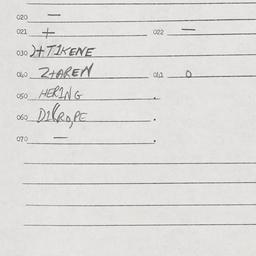 020 —
021 + 022 —
030 )+TIKENE
040 Z+AREN 041 0
050 HERING .
060 .
070 — .